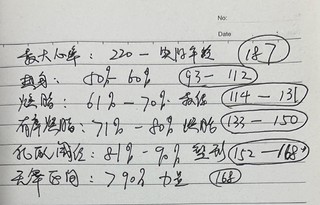 No:
Date
最大心率：220 - 实际年龄 187
热身：50% - 60% 93 - 112
燃脂：61% - 70% 114 - 131
有氧燃脂：71% - 80% 燃脂 133 - 150
81% - 90% 152 - 168
无氧区间：>90% 力量 168